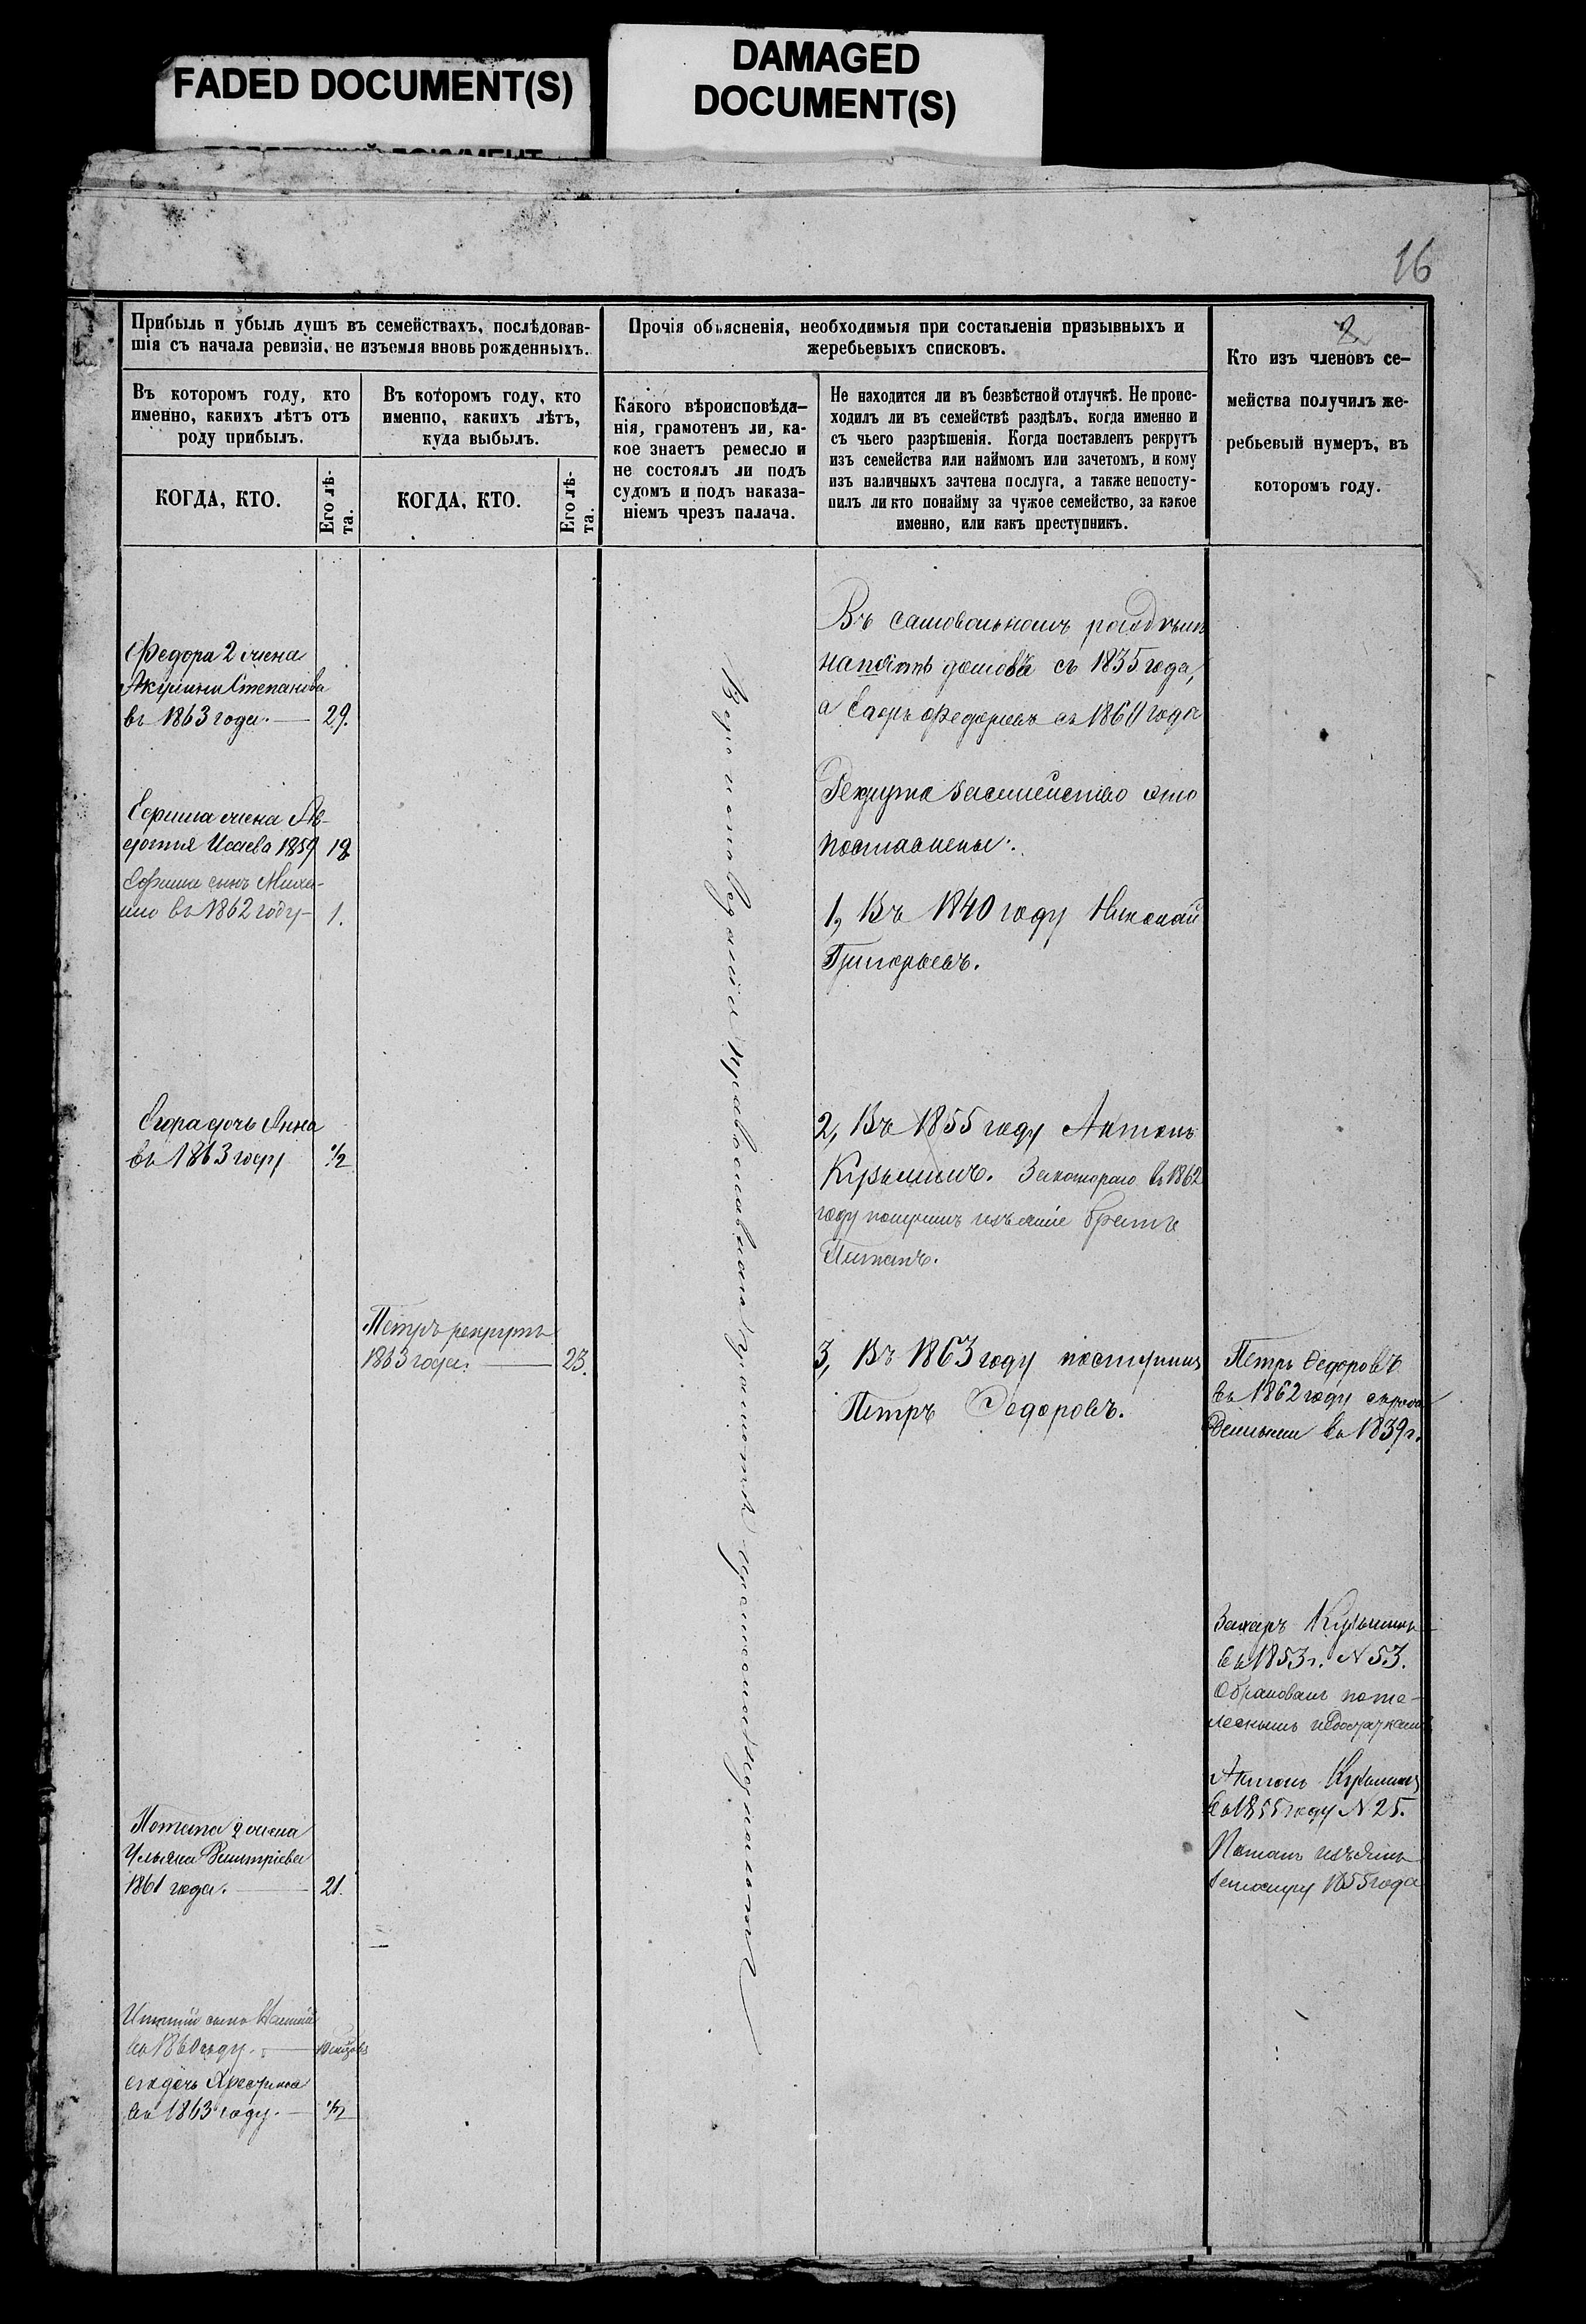 FADED DOCUMENT(S)
DAMAGED
DOCUMENT(S)
16
Прибыль и убыль душъ въ семействахъ, послѣдовав-
шія съ начала ревизіи, не изъемля вновь рожденныхъ.
Въ которомъ году, кто
именно, какихъ лѣтъ отъ
роду прибылъ.
КОГДА, КТО.
Его лѣ-
та.
Въ которомъ году, кто
именно, какихъ лѣтъ,
куда выбылъ.
КОГДА, КТО.
Его лѣ-
та.
Прочія объясненія, необходимыя при составленіи призывныхъ и
жеребьевыхъ списковъ.
Какого вѣроисповѣда-
нія, грамотенъ ли, ка-
кое знаетъ ремесло и
не состоялъ ли подъ
судомъ и подъ наказа-
ніемъ чрезъ палача.
Не находится ли въ безвѣстной отлучкѣ. Не проис-
ходилъ ли въ семействѣ раздѣлъ, когда именно и
съ чьего разрѣшенія. Когда поставленъ рекрутъ
изъ семейства или наймомъ или зачетомъ, и кому
изъ наличныхъ зачтена послуга, а также непосту-
пилъ ли кто понайму за чужое семейство, за какое
именно, или какъ преступникъ.
2
Кто изъ членовъ се-
мейства получилъ же-
ребьевый нумеръ, въ
которомъ году.
Федора 2 жена
Акулина Степанова
въ 1863 года. 29.
Ефима жена Ав-
дотья Исаева 1859 18
Ефима сынъ Миха-
ило въ 1862 году 1.
Егора дочь Анна
въ 1863 году 1/2
Потапа 2 жена
Ульяна Дмитріева
1861 года. 21.
сынъ
въ 1860 году.
его дочь
въ 1863 году. 1/2
Петръ рекрутъ
1863 года. 23.
Вероисповеданія православнаго
Въ самовольномъ разделе
на пять домовъ съ 1835 года,
а Федоровъ съ 1860 года
Рекрута за семейство это
поставлены:
1, Въ 1840 году Николай
Григорьевъ.
2, Въ 1855 году Антонъ
Кузьминъ. За котораго въ 1862
году получилъ изъятіе братъ
Потапъ.
3, Въ 1863 году поступилъ
Петръ Федоровъ.
Петръ Федоровъ
въ 1862 году
въ 1839 г.
Захаръ Кузьминъ
въ 1853 г. N 53.
Обракованъ по те-
леснымъ недостаткамъ
Антонъ Кузьминъ
въ 1855 году N 25.
Потапъ изъятъ
1855 года